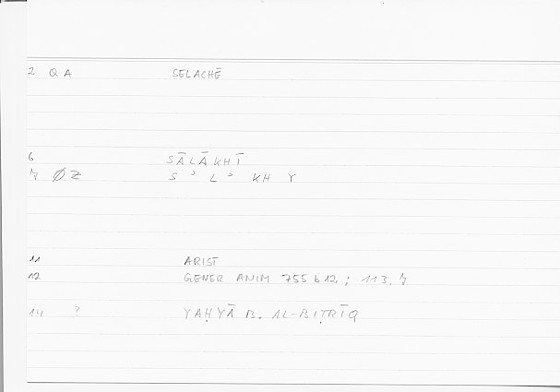 2 QA SELACHĒ
6 SĀLĀKHĪ
7 ØZ S ʾ L ʾ KH Y
11 ARIST
12 GENER ANIM 755 b 12 ; 113.7
14 ? YAḤYĀ B. AL-BIṬRĪQ